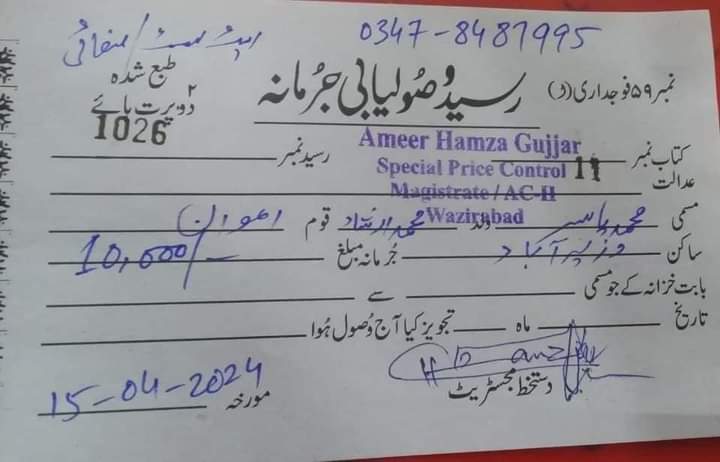 0347-8487995
طبع شدہ
نمبر ۵۹ فوجداری (د) رسید وصولیابی جرمانہ
۲ پرت ہائے
کتاب نمبر 11 رسید نمبر 1026
Ameer Hamza Gujjar
Special Price Control
Magistrate / AC-II
Wazirabad
عدالت
مسمی محمد یاسر ولد محمد ارشاد قوم اعوان
ساکن وزیر آباد جرمانہ مبلغ 10,000/-
بابت خزانہ کے جو مسمی سے
تاریخ ماہ تجویز کیا آج وصول ہوا
دستخط مجسٹریٹ
مورخہ 15-04-2024